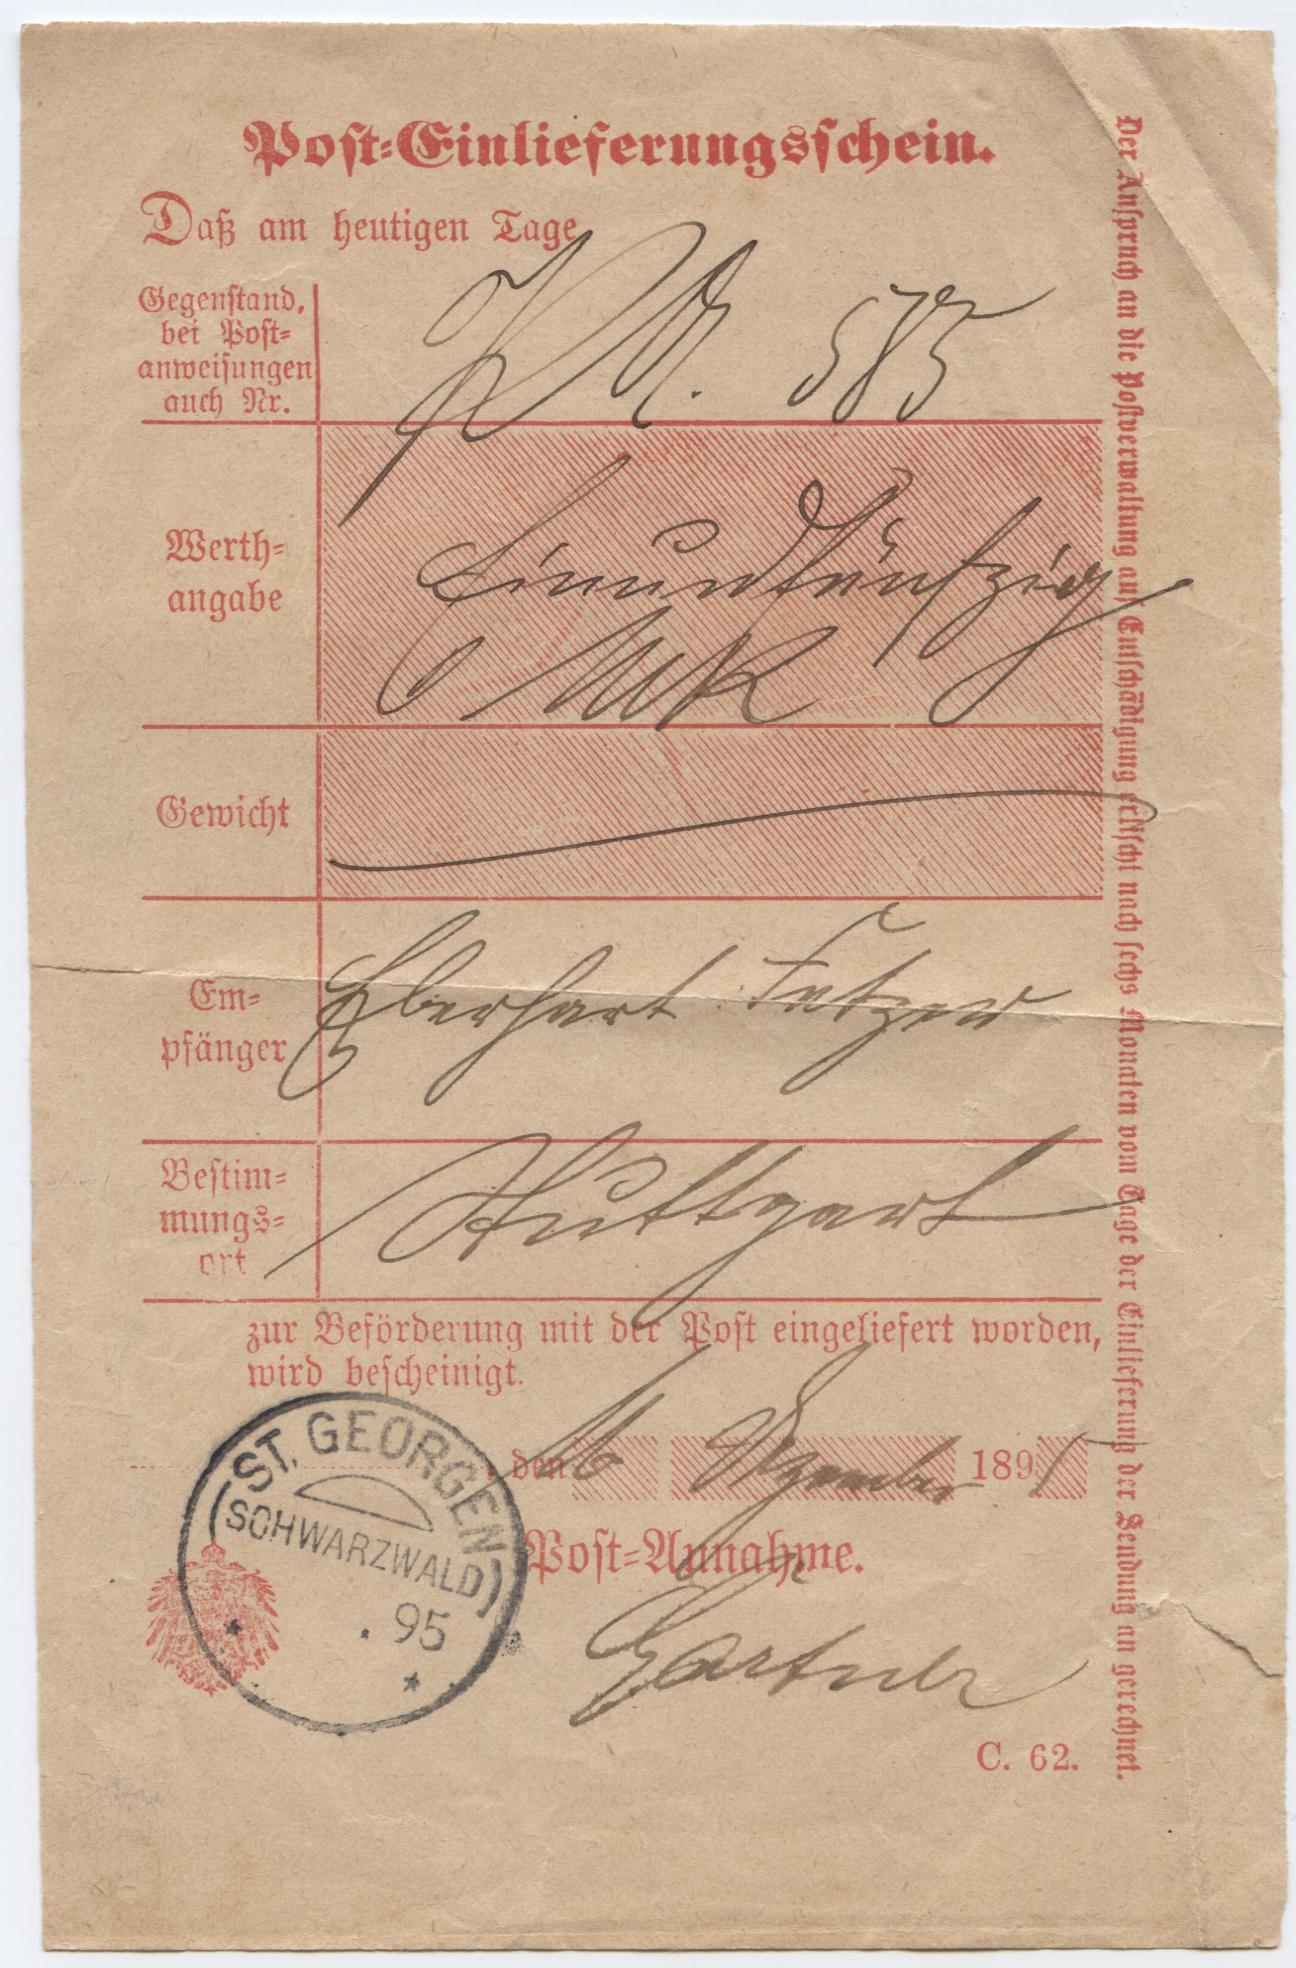 Post-Einlieferungsschein.
Daß am heutigen Tage
Gegenstand,
bei Post-
anweisungen
auch Nr.
585
Werth-
angabe
Einundfünfzig
Mk
Gewicht
Em-
pfänger
Eberhart Fetzer
Bestim-
mungs-
ort
Stuttgart
zur Beförderung mit der Post eingeliefert worden,
wird bescheinigt.
den 16 Dezember 1895
Post-Annahme.
Gärtner
C. 62.
ST. GEORGEN
(SCHWARZWALD)
. . 95
* *
Der Anspruch an die Postverwaltung auf Entschädigung erlischt nach sechs Monaten vom Tage der Einlieferung der Sendung an gerechnet.